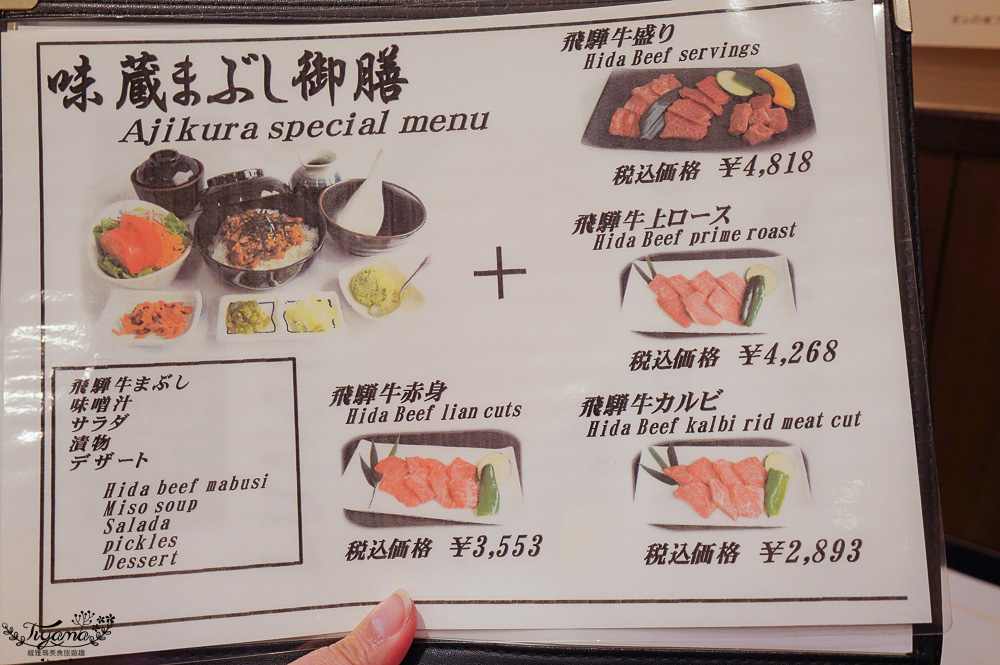 味蔵まぶし御膳
Ajikura special menu
飛騨牛盛り
Hida Beef servings
税込価格 ¥4,818
飛騨牛上ロース
Hida Beef prime roast
税込価格 ¥4,268
+
飛騨牛まぶし
味噌汁
サラダ
漬物
デザート
Hida beef mabusi
Miso soup
Salada
pickles
Dessert
飛騨牛赤身
Hida Beef lian cuts
税込価格 ¥3,553
飛騨牛カルビ
Hida Beef kalbi rid meat cut
税込価格 ¥2,893
Tiyama
緹雅瑪美食旅遊趣